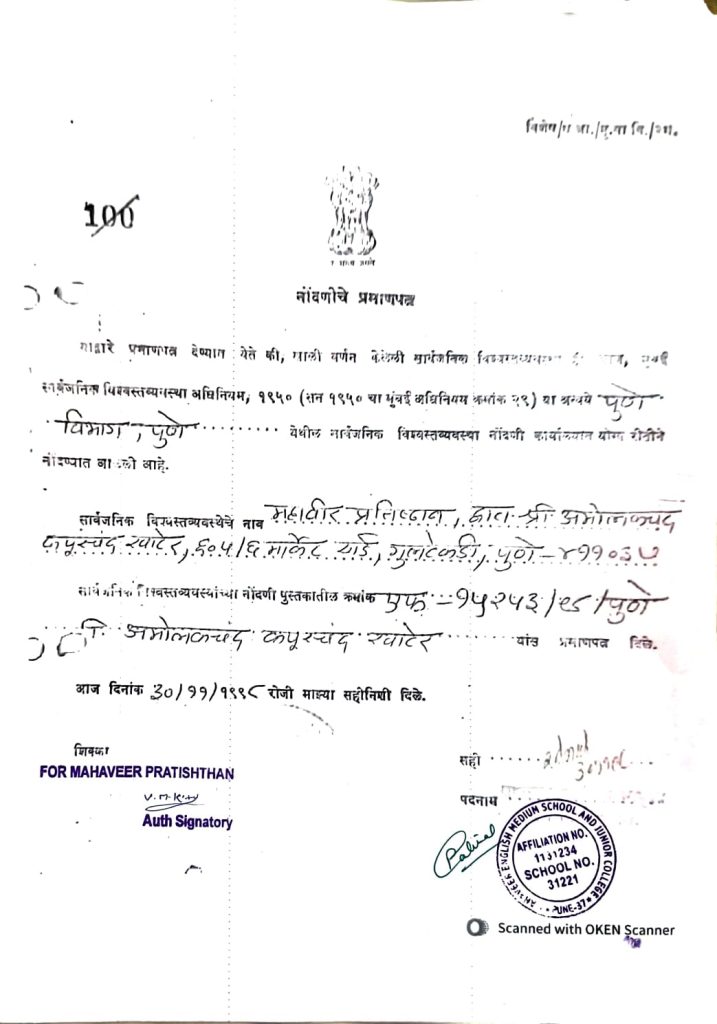 100
नोंदणीचे प्रमाणपत्र
याद्वारे प्रमाणपत्र देण्यात येते की, खाली वर्णन केलेली सार्वजनिक विश्वस्तव्यवस्था मुंबई
सार्वजनिक विश्वस्तव्यवस्था अधिनियम, १९५० (सन १९५० चा मुंबई अधिनियम क्रमांक २९) या अन्वये पुणे
विभाग, पुणे येथील सार्वजनिक विश्वस्तव्यवस्था नोंदणी कार्यालयात योग्य रीतीने
नोंदण्यात आलेली आहे.
सार्वजनिक विश्वस्तव्यवस्थेचे नाव महावीर प्रतिष्ठान, श्री अमोलकचंद
कपूरचंद खाटेर, ६०५/६ मार्केट यार्ड, गुलटेकडी, पुणे - ४११०३७
सार्वजनिक विश्वस्तव्यवस्थांच्या नोंदणी पुस्तकातील क्रमांक एफ - १५२५३/९८/पुणे
अमोलकचंद कपूरचंद खाटेर यांस प्रमाणपत्र दिले.
आज दिनांक ३०/११/१९९८ रोजी माझ्या सहीनिशी दिले.
शिक्का
सही
FOR MAHAVEER PRATISHTHAN
पदनाम
Auth Signatory
ENGLISH MEDIUM SCHOOL AND JUNIOR COLLEGE
AFFILIATION NO.
SCHOOL NO.
31221
PUNE-37
Scanned with OKEN Scanner